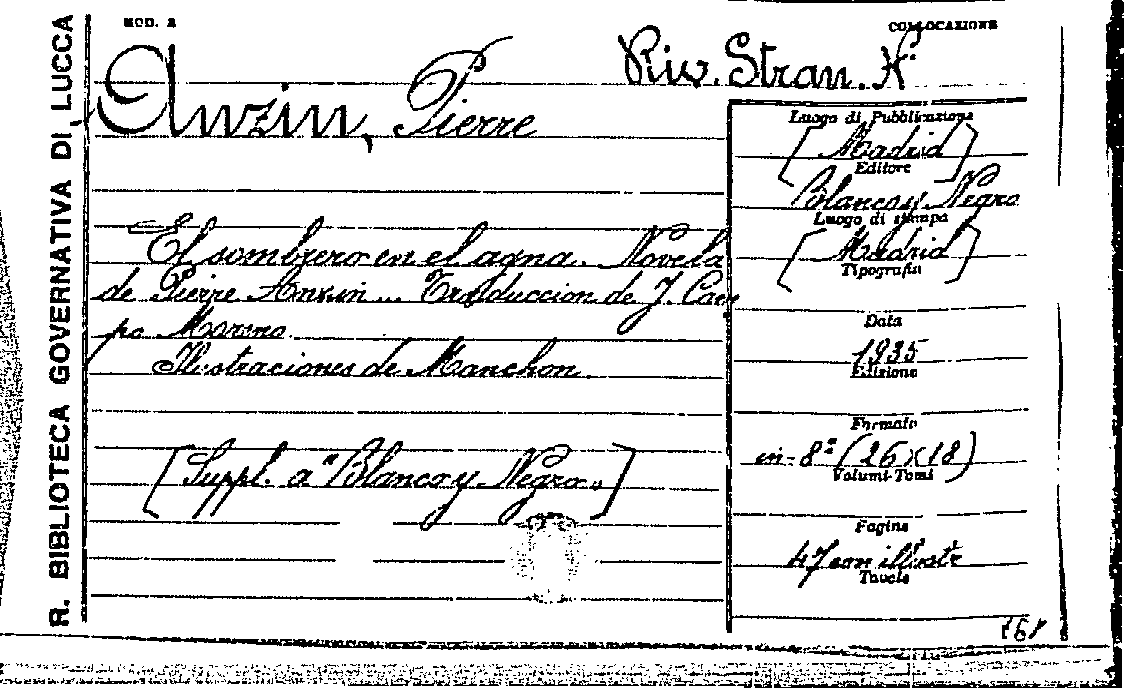 R. BIBLIOTECA GOVERNATIVA DI LUCCA
MOD. 2
COLLOCAZIONE
Riv. Stran. K
Anzin, Pierre
El sombrero en el agua. Novela
de Pierre Anzin ... Traduccion de J. Cam
po Moreno.
Ilustraciones de Manchon.
[Suppl. a "Blanco y Negro"]
Luogo di Pubblicazione
[Madrid]
Editore
Blanco y Negro
Luogo di stampa
[Madrid]
Tipografia
Data
1935
Edizione
Formato
in-8º (26x18)
Volumi-Tomi
Pagine
47 con illustr
Tavole